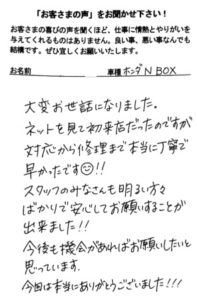 「お客さまの声」をお聞かせ下さい！
お客さまの喜びの声を聞くほど、仕事に情熱とやりがいを
与えてくれるものはありません。良い事、悪い事なんでも
結構です。ぜひ宜しくお願いいたします。
お名前　車種 ホンダ N BOX
大変お世話になりました。
ネットを見て初来店だったのですが
対応から修理まで本当に丁寧で
早かったです☺!!
スタッフのみなさんも明るい方々
ばかりで安心してお願いすることが
出来ました!!
今後も機会があればお願いしたいと
思っています.
今回は本当にありがとうございました!!!